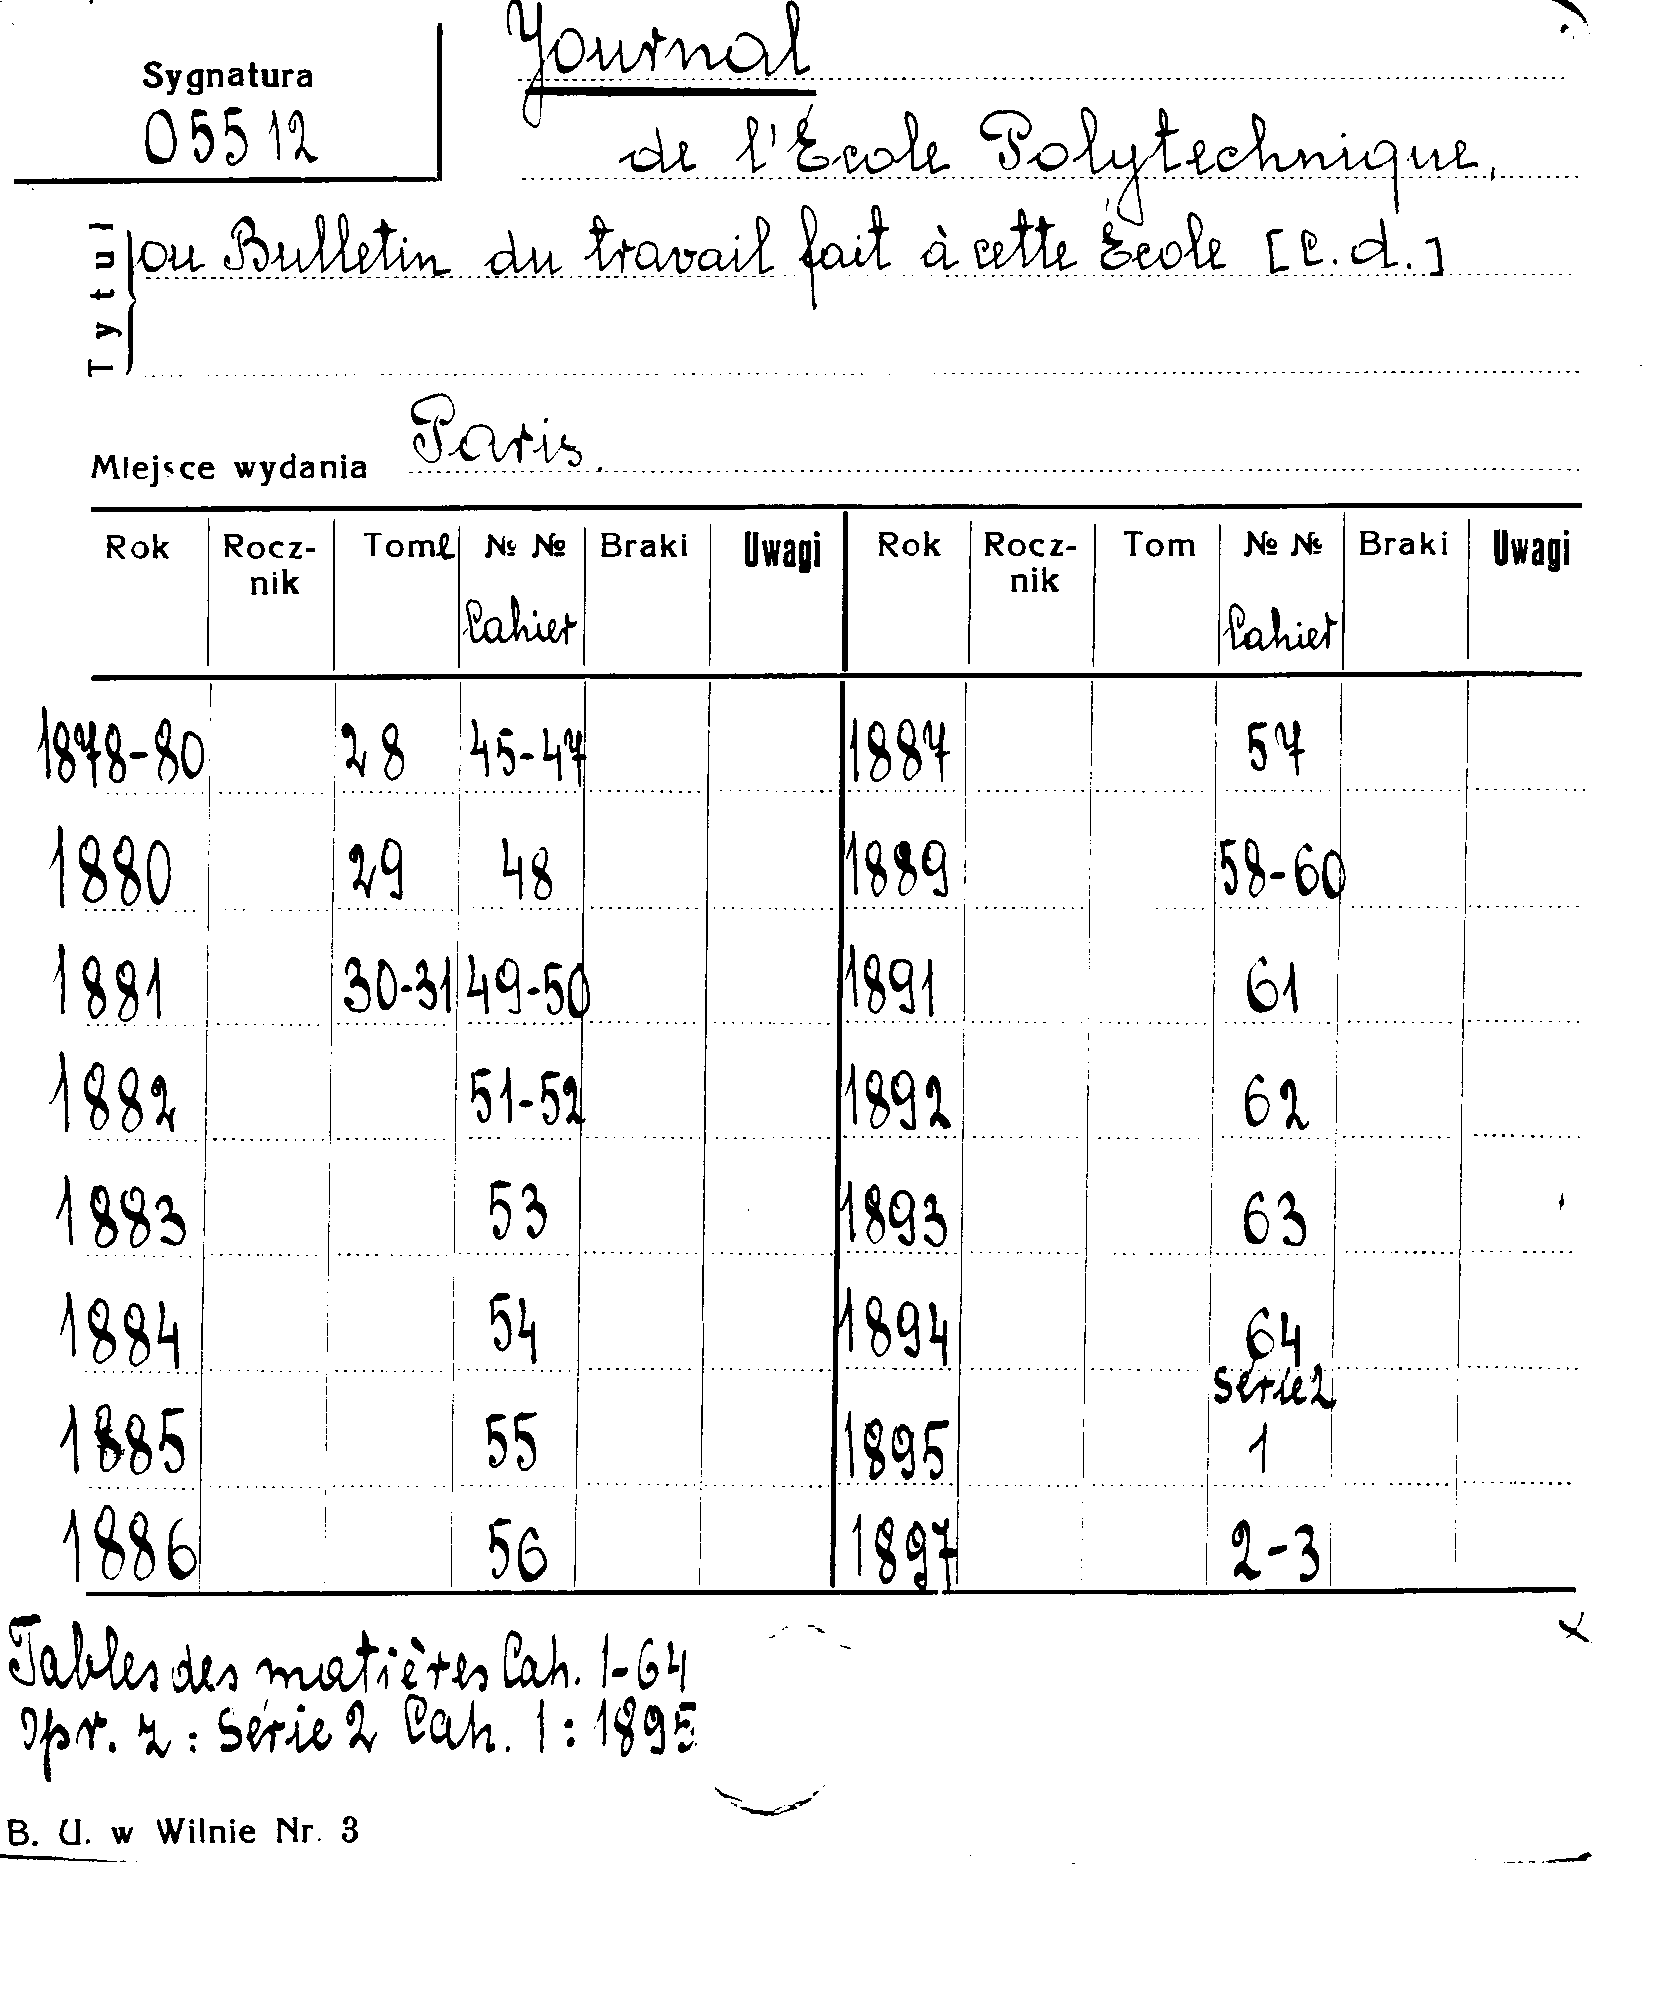 Journal
Sygnatura
05512
de l'École Polytechnique,
Tytuł
ou Bulletin du travail fait à cette École [c.d.]
Miejsce wydania Paris.
Rok Rocz-nik Tome № № Cahier Braki Uwagi Rok Rocz-nik Tom № № Cahier Braki Uwagi
1878-80 28 45-47 1887 57
1880 29 48 1889 58-60
1881 30-31 49-50 1891 61
1882 51-52 1892 62
1883 53 1893 63
1884 54 1894 64
Serie 2
1885 55 1895 1
1886 56 1897 2-3
Tables des matières Cah. 1-64
opr. z: Série 2 Cah. 1: 1895
B. U. w Wilnie Nr. 3